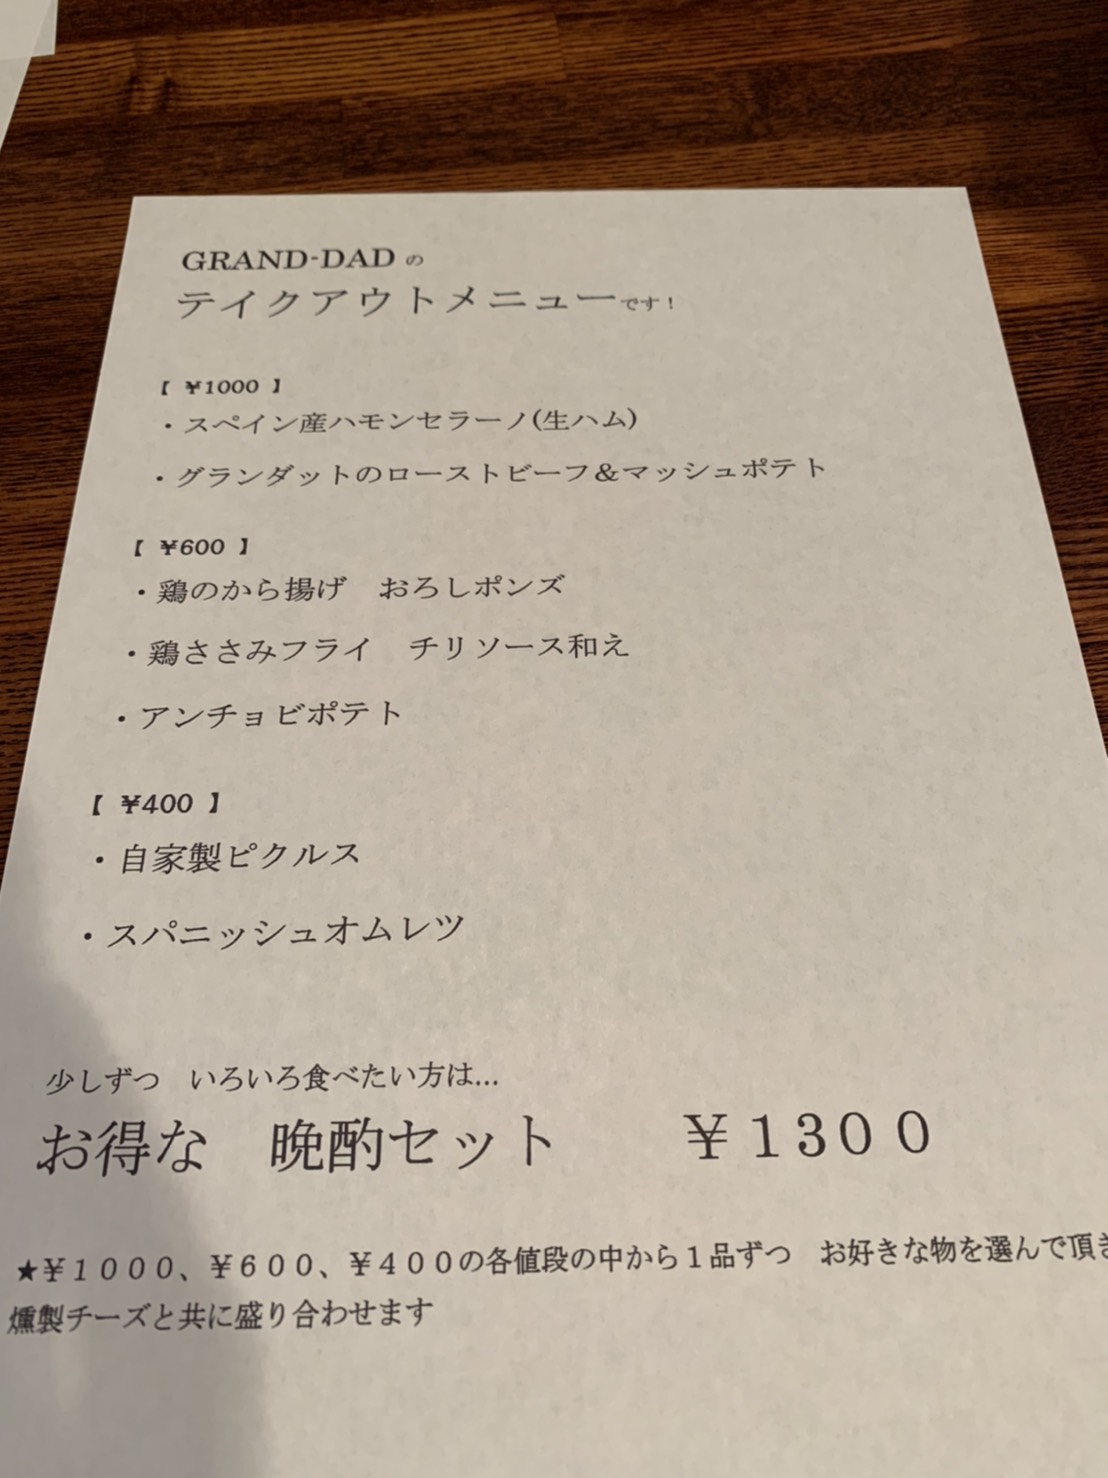 GRAND-DAD の
テイクアウトメニューです！
【 ¥1000 】
・スペイン産ハモンセラーノ(生ハム)
・グランダットのローストビーフ＆マッシュポテト
【 ¥600 】
・鶏のから揚げ　おろしポンズ
・鶏ささみフライ　チリソース和え
・アンチョビポテト
【 ¥400 】
・自家製ピクルス
・スパニッシュオムレツ
少しずつ　いろいろ食べたい方は...
お得な　晩酌セット　　￥１３００
★￥１０００、￥６００、￥４００の各値段の中から１品ずつ　お好きな物を選んで頂き
燻製チーズと共に盛り合わせます